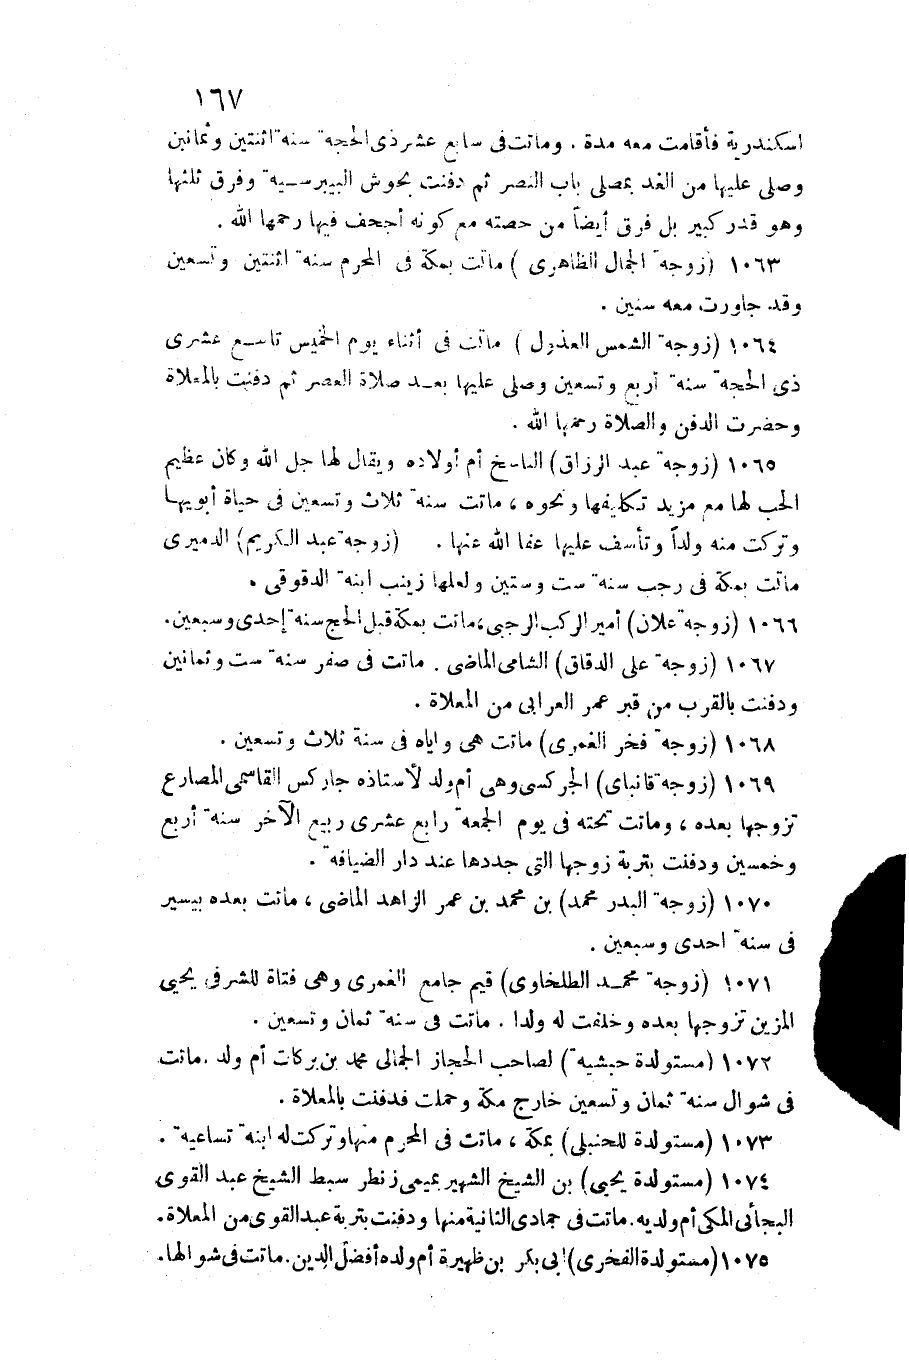 ١٦٧
اسكندرية فأقامت معه مدة . وماتت فى سابع عشر ذى الحجة سنة اثنتين وثمانين
وصلى عليها من الغد بمصلى باب النصر ثم دفنت بحوش البيبرسية وفرق ثلثها
وهو قدر كبير بل فرق أيضاً من حصته مع كونه أجحف فيها رحمها الله .
١٠٦٣ (زوجة الجمال الظاهرى) ماتت بمكة فى المحرم سنة اثنتين وتسعين
وقد جاورت معه سنين .
١٠٦٤ (زوجة الشمس العذول) ماتت فى أثناء يوم الخميس تاسع عشرى
ذى الحجة سنة أربع وتسعين وصلى عليها بعد صلاة العصر ثم دفنت بالمعلاة
وحضرت الدفن والصلاة رحمها الله .
١٠٦٥ (زوجة عبد الرزاق) الناسخ أم أولاده ويقال لها جل الله وكان عظيم
الحب لها مع مزيد تكليفها ونحوه ، ماتت سنة ثلاث وتسعين فى حياة أبويها
وتركت منه ولداً وتأسف عليها عفا الله عنها . (زوجة عبد الكريم) الدميرى
ماتت بمكة فى رجب سنة ست وستين ولعلها زينب ابنة الدقوقى .
١٠٦٦ (زوجة علان) أمير الركب الرجبى ، ماتت بمكة قبل الحج سنة إحدى وسبعين.
١٠٦٧ (زوجة على الدقاق) الشامى الماضى . ماتت فى صفر سنة ست وثمانين
ودفنت بالقرب من قبر عمر العرابى من المعلاة .
١٠٦٨ (زوجة فخر الغمرى) ماتت هى واياه فى سنة ثلاث وتسعين .
١٠٦٩ (زوجة قانباى) الجركسى وهى أم ولد لأستاذه جاركس القاسمى المصارع
تزوجها بعده ، وماتت تحته فى يوم الجمعة رابع عشرى ربيع الآخر سنة أربع
وخمسين ودفنت بتربة زوجها التى جددها عند دار الضيافة .
١٠٧٠ (زوجة البدر محمد) بن محمد بن عمر الزاهد الماضى ، ماتت بعده بيسير
فى سنة احدى وسبعين .
١٠٧١ (زوجة محمد الطلخاوى) قيم جامع الغمرى وهى فتاة للشرفى يحيى
المزين تزوجها بعده وخلفت له ولدا . ماتت فى سنة ثمان وتسعين .
١٠٧٢ (مستولدة حبشية) لصاحب الحجاز الجمالى محمد بن بركات أم ولد . ماتت
فى شوال سنة ثمان وتسعين خارج مكة وحملت فدفنت بالمعلاة .
١٠٧٣ (مستولدة للحنبلى) بمكة ، ماتت فى المحرم منها وتركت له ابنة تساعية .
١٠٧٤ (مستولدة يحيى) بن الشيخ الشهير بميمى زنطر سبط الشيخ عبد القوى
البجائى المكى أم ولديه . ماتت فى جمادى الثانية منها ودفنت بتربة عبد القوى من المعلاة.
١٠٧٥ (مستولدة الفخرى) أبى بكر بن ظهيرة أم ولده أفضل الدين . ماتت فى شوالها.